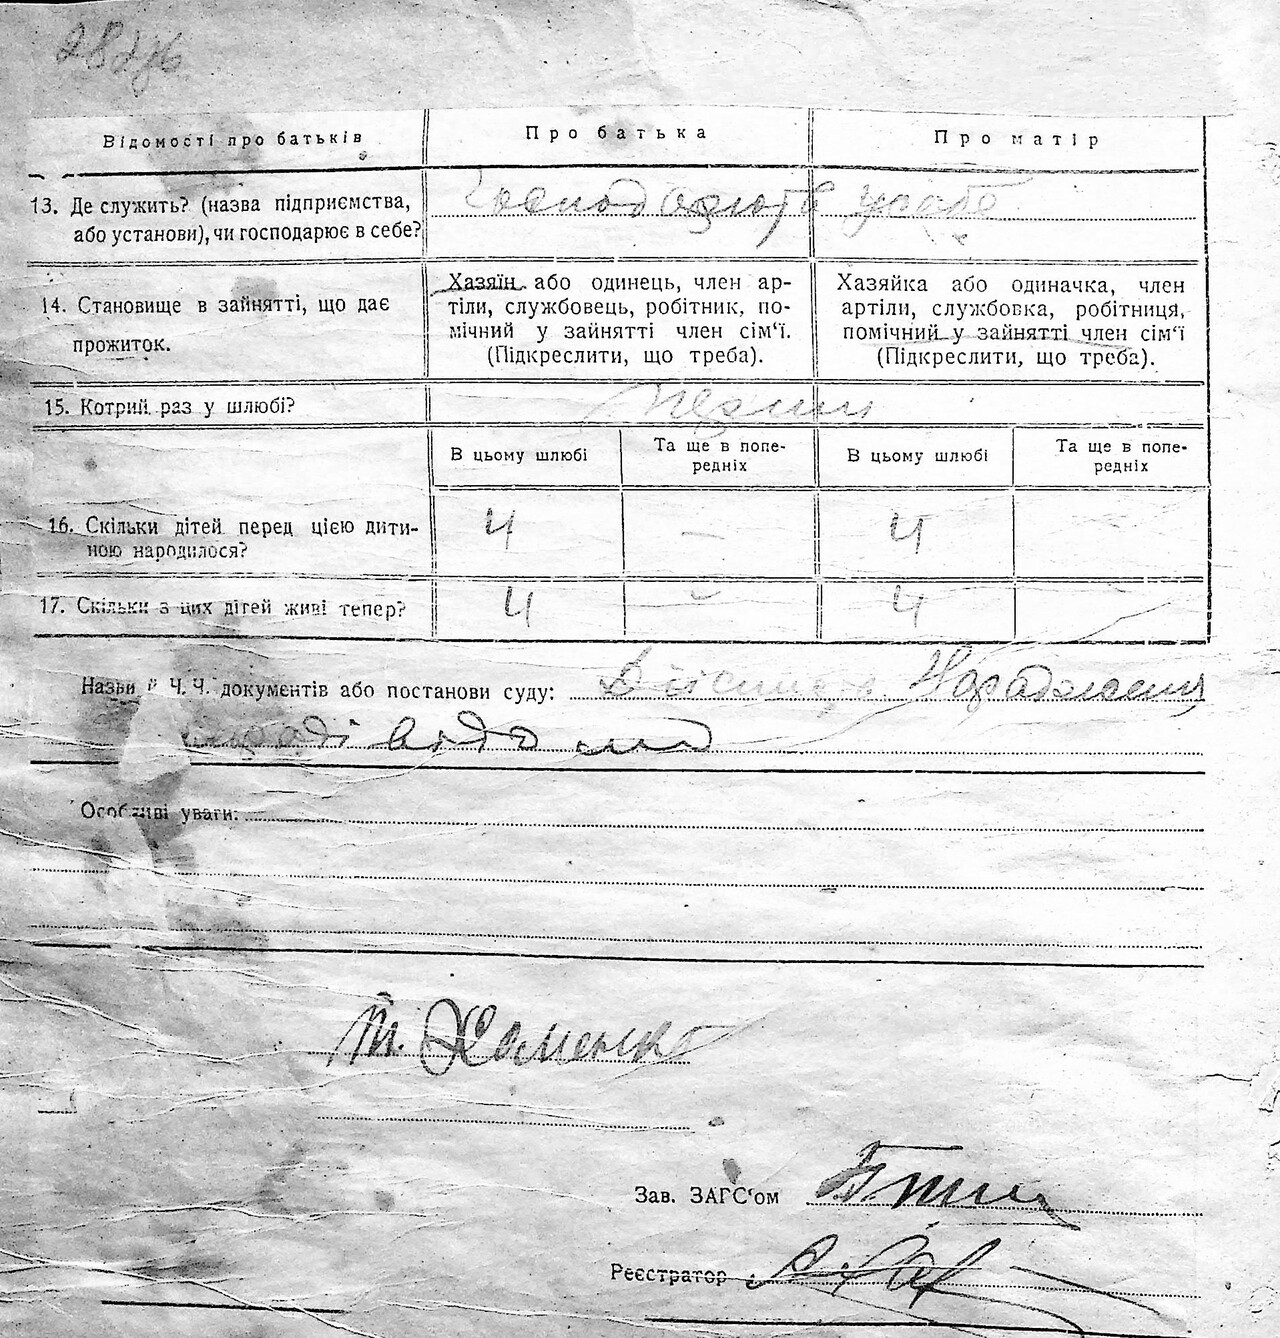 Відомості про батьків
Про батька
Про матір
13. Де служить? (назва підприємства,
або установи), чи господарює в себе?
Господарюють у себе
14. Становище в зайнятті, що дає
прожиток.
Хазяїн або одинець, член ар-
тілі, службовець, робітник, по-
мічний у зайнятті член сім'ї.
(Підкреслити, що треба).
Хазяйка або одиначка, член
артілі, службовка, робітниця,
помічний у зайнятті член сім'ї
(Підкреслити, що треба).
15. Котрий раз у шлюбі?
В цьому шлюбі
Та ще в попе-
редніх
В цьому шлюбі
Та ще в попе-
редніх
16. Скільки дітей перед цією дити-
ною народилося?
4 – 4
17. Скільки з цих дітей живі тепер?
4 – 4
Назви й Ч.Ч. документів або постанови суду:
відомо
Особливі уваги:
Хоменко
Зав. ЗАГС'ом
Реєстратор